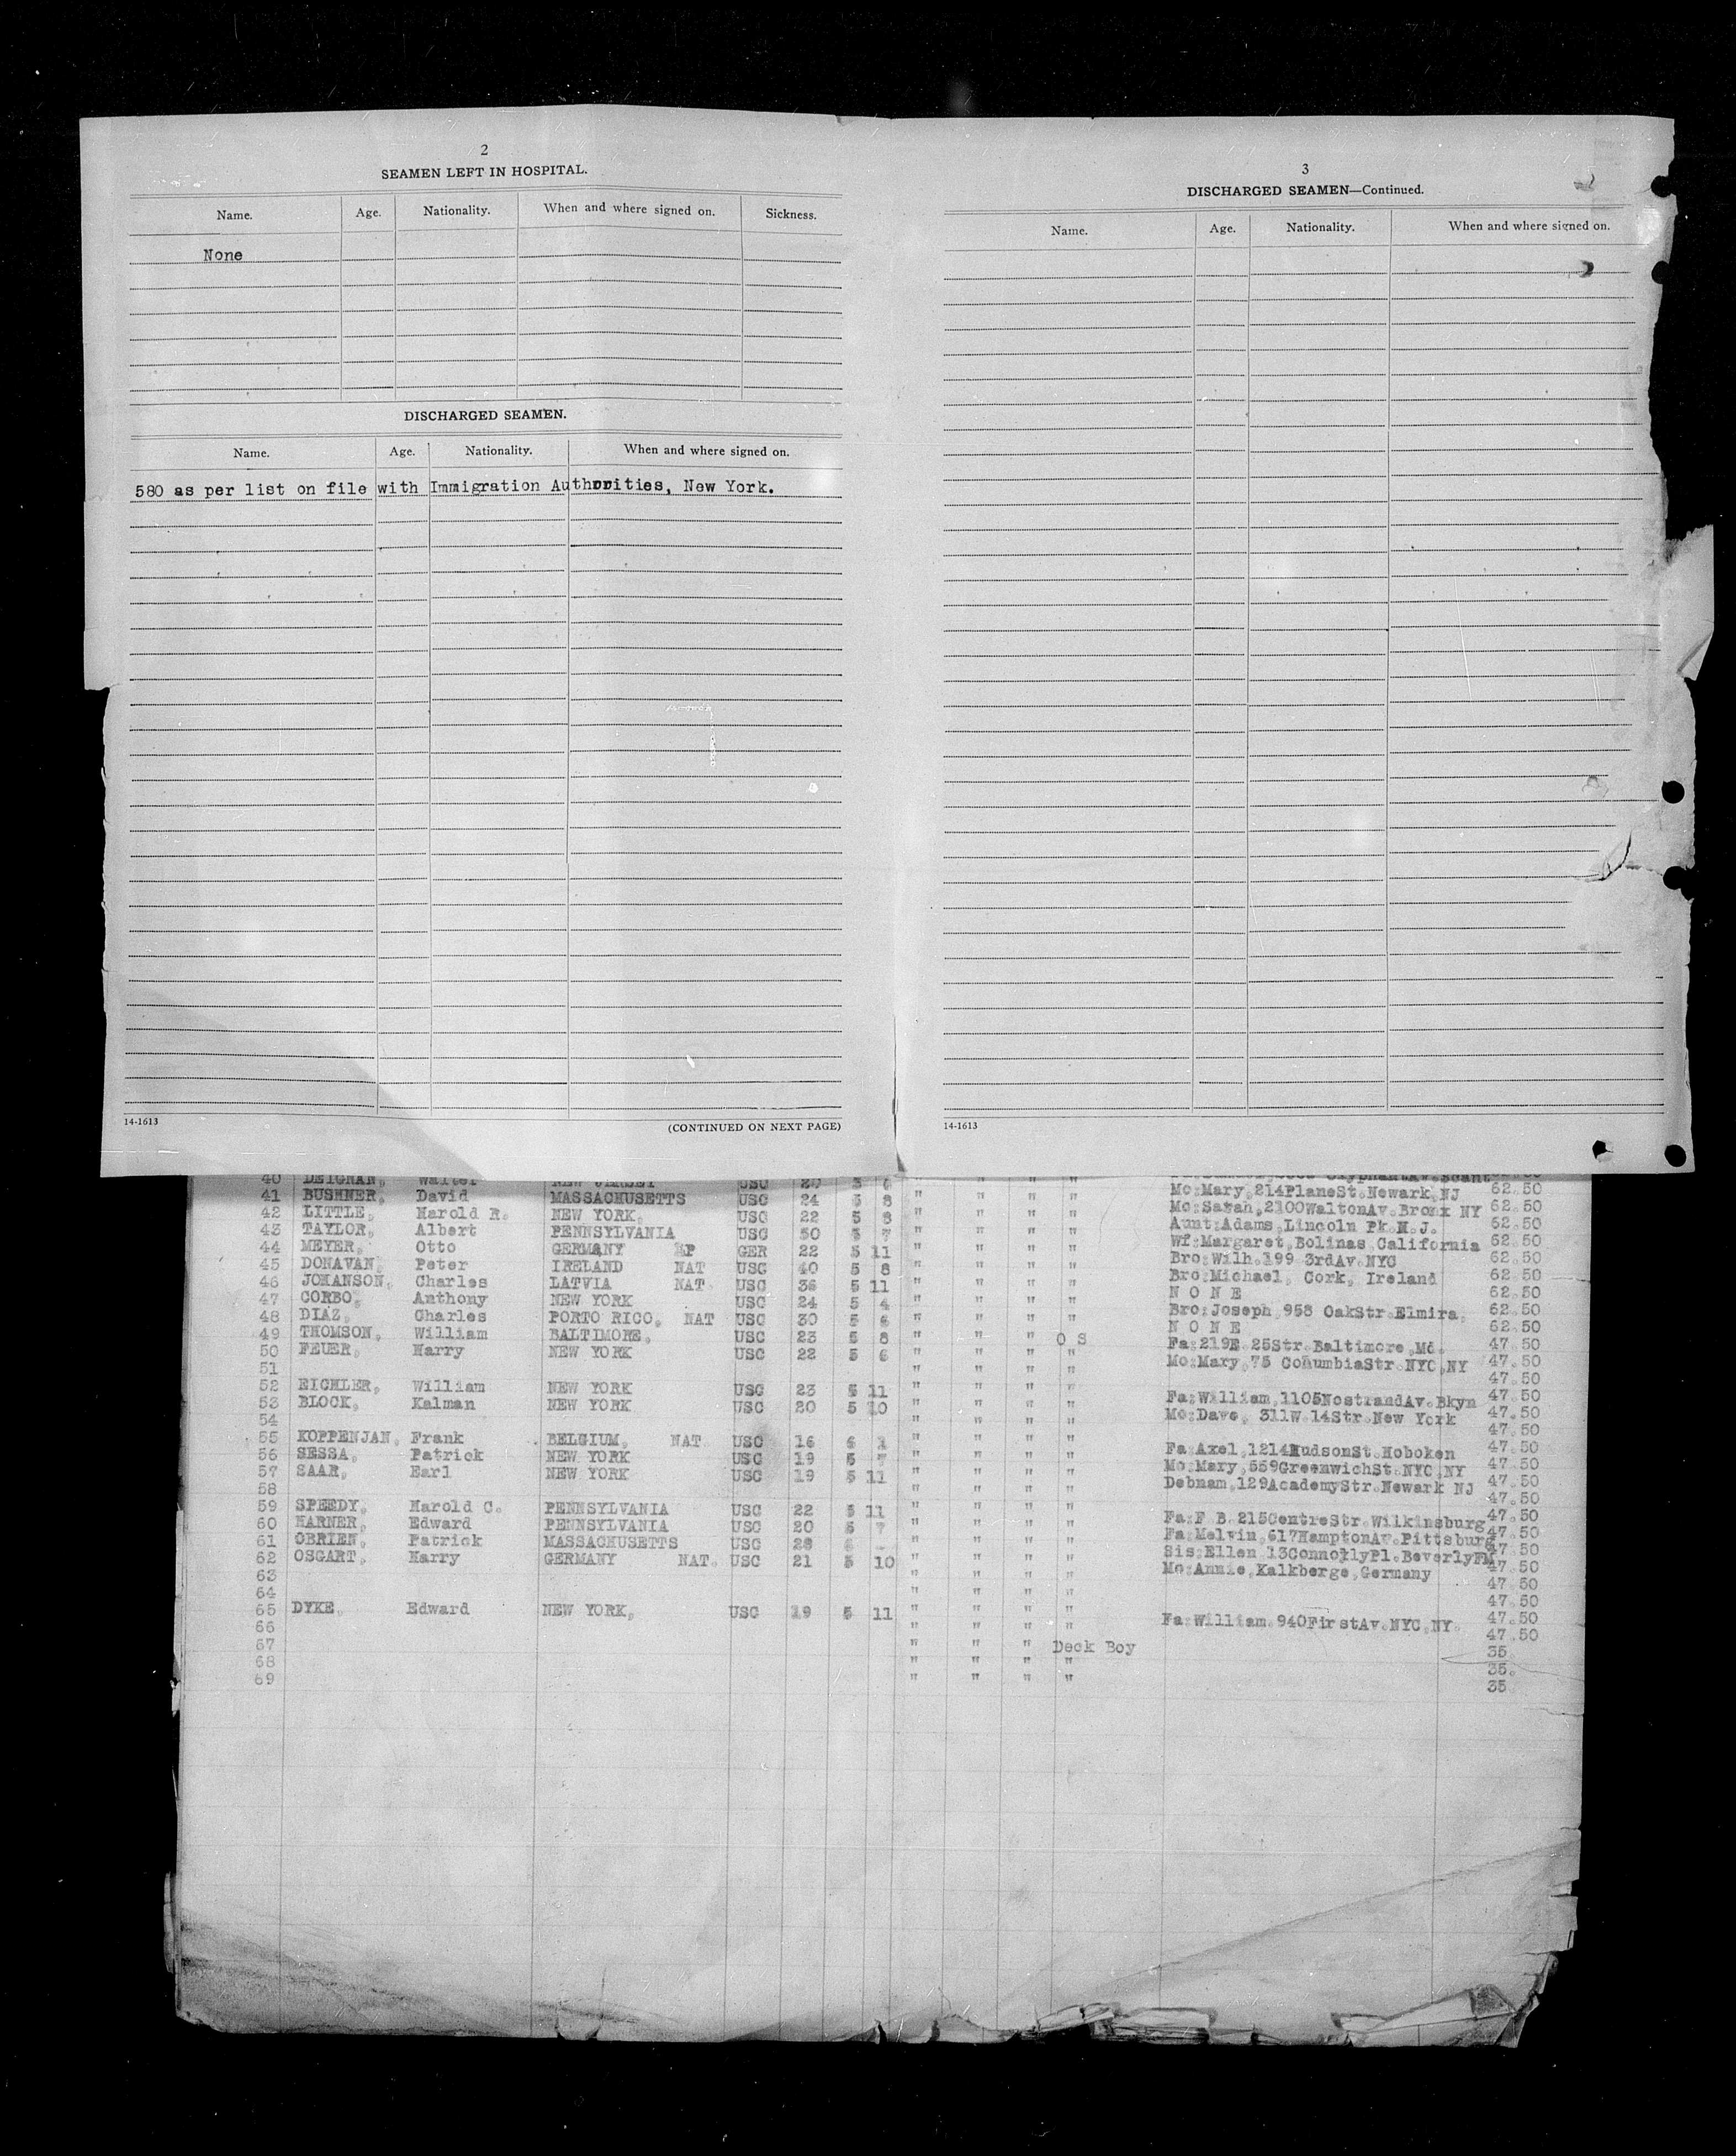 2
SEAMEN LEFT IN HOSPITAL.
Name. Age. Nationality. When and where signed on. Sickness.
None
DISCHARGED SEAMEN.
Name. Age. Nationality. When and where signed on.
580 as per list on file with Immigration Authorities, New York.
14-1613 (CONTINUED ON NEXT PAGE)
3
DISCHARGED SEAMEN—Continued.
Name. Age. Nationality. When and where signed on.
14-1613
40 DEIGNAN, Walter NEW JERSEY USC 20 5 6 " " "
41 BUSHNER, David MASSACHUSETTS USC 24 5 8 " " " Mo:Mary,214PlaneSt.Newark,NJ 62.50
42 LITTLE, Harold R. NEW YORK, USC 22 5 8 " " " Mo:Sarah,2100WaltonAv.Bronx NY 62.50
43 TAYLOR, Albert PENNSYLVANIA USC 50 5 7 " " " Aunt:Adams,Lincoln Pk.N.J. 62.50
44 MEYER, Otto GERMANY GER 22 5 11 " " " Wf:Margaret,Bolinas,California 62.50
45 DONAVAN, Peter IRELAND NAT USC 40 5 8 " " " Bro:Wilh.199 3rdAv.NYC 62.50
46 JOHANSON, Charles LATVIA NAT. USC 36 5 11 " " " Bro:Michael, Cork, Ireland 62.50
47 CORBO, Anthony NEW YORK USC 24 5 4 " " " N O N E 62.50
48 DIAZ, Charles PORTO RICO, NAT USC 30 5 6 " " " Bro:Joseph,958 OakStr.Elmira. 62.50
49 THOMSON, William BALTIMORE, USC 23 5 8 " " " O S N O N E 62.50
50 FEUER, Harry NEW YORK USC 22 5 6 " " " " Fa:219E.25Str.Baltimore,Md. 47.50
51 " " " " Mo:Mary,75 ColumbiaStr.NYC,NY 47.50
52 EICHLER, William NEW YORK USC 23 5 11 " " " " 47.50
53 BLOCK, Kalman NEW YORK USC 20 5 10 " " " " Fa:William,1105NostrandAv.Bkyn 47.50
54 " " " " Mo:Dave, 311W.14Str.New York 47.50
55 KOPPENJAN, Frank BELGIUM, NAT. USC 16 6 1 " " " " 47.50
56 SESSA, Patrick NEW YORK USC 19 5 7 " " " " Fa:Axel,1214HudsonSt.Hoboken 47.50
57 SAAR, Earl NEW YORK USC 19 5 11 " " " " Mo:Mary,559GreenwichSt.NYC,NY 47.50
58 " " " " Debnam,129AcademyStr.Newark NJ 47.50
59 SPEEDY, Harold C. PENNSYLVANIA USC 22 5 11 " " " " 47.50
60 HARNER, Edward PENNSYLVANIA USC 20 5 7 " " " " Fa:F.B.215CentreStr.Wilkinsburg 47.50
61 OBRIEN, Patrick MASSACHUSETTS USC " " " " Fa:Melvin,617HamptonAv.Pittsburg 47.50
62 OSGART, Harry GERMANY NAT. USC 21 5 10 " " " " Sis:Ellen,13ConnollyPl.Beverly 47.50
63 " " " " Mo:Annie,Kalkberge,Germany 47.50
64 " " " " 47.50
65 DYKE, Edward NEW YORK, USC 19 5 11 " " " " 47.50
66 " " " " Fa:William.940FirstAv.NYC,NY. 47.50
67 " " " Deck Boy 47.50
68 " " " " 35.
69 " " " " 35.
35